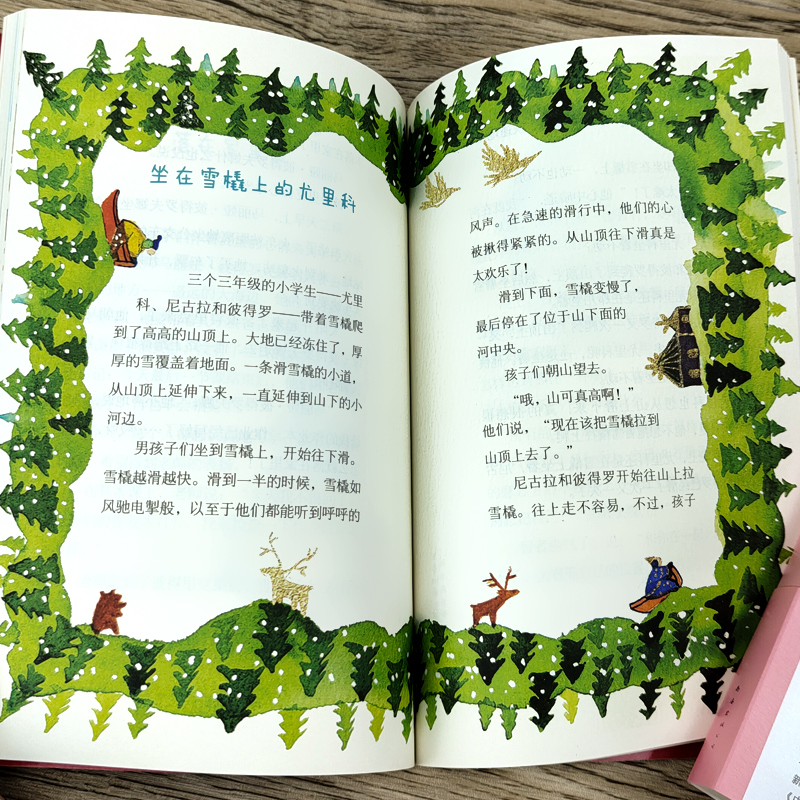 坐在雪橇上的尤里科
三个三年级的小学生——尤里
科、尼古拉和彼得罗——带着雪橇爬
到了高高的山顶上。大地已经冻住了，厚
厚的雪覆盖着地面。一条滑雪橇的小道，
从山顶上延伸下来，一直延伸到山下的小
河边。
男孩子们坐到雪橇上，开始往下滑。
雪橇越滑越快。滑到一半的时候，雪橇如
风驰电掣般，以至于他们都能听到呼呼的
风声。在急速的滑行中，他们的心
被揪得紧紧的。从山顶往下滑真是
太欢乐了！
滑到下面，雪橇变慢了，
最后停在了位于山下面的
河中央。
孩子们朝山望去。
“哦，山可真高啊！”
他们说，“现在该把雪橇拉到
山顶上去了。”
尼古拉和彼得罗开始往山上拉
雪橇。往上走不容易，不过，孩子